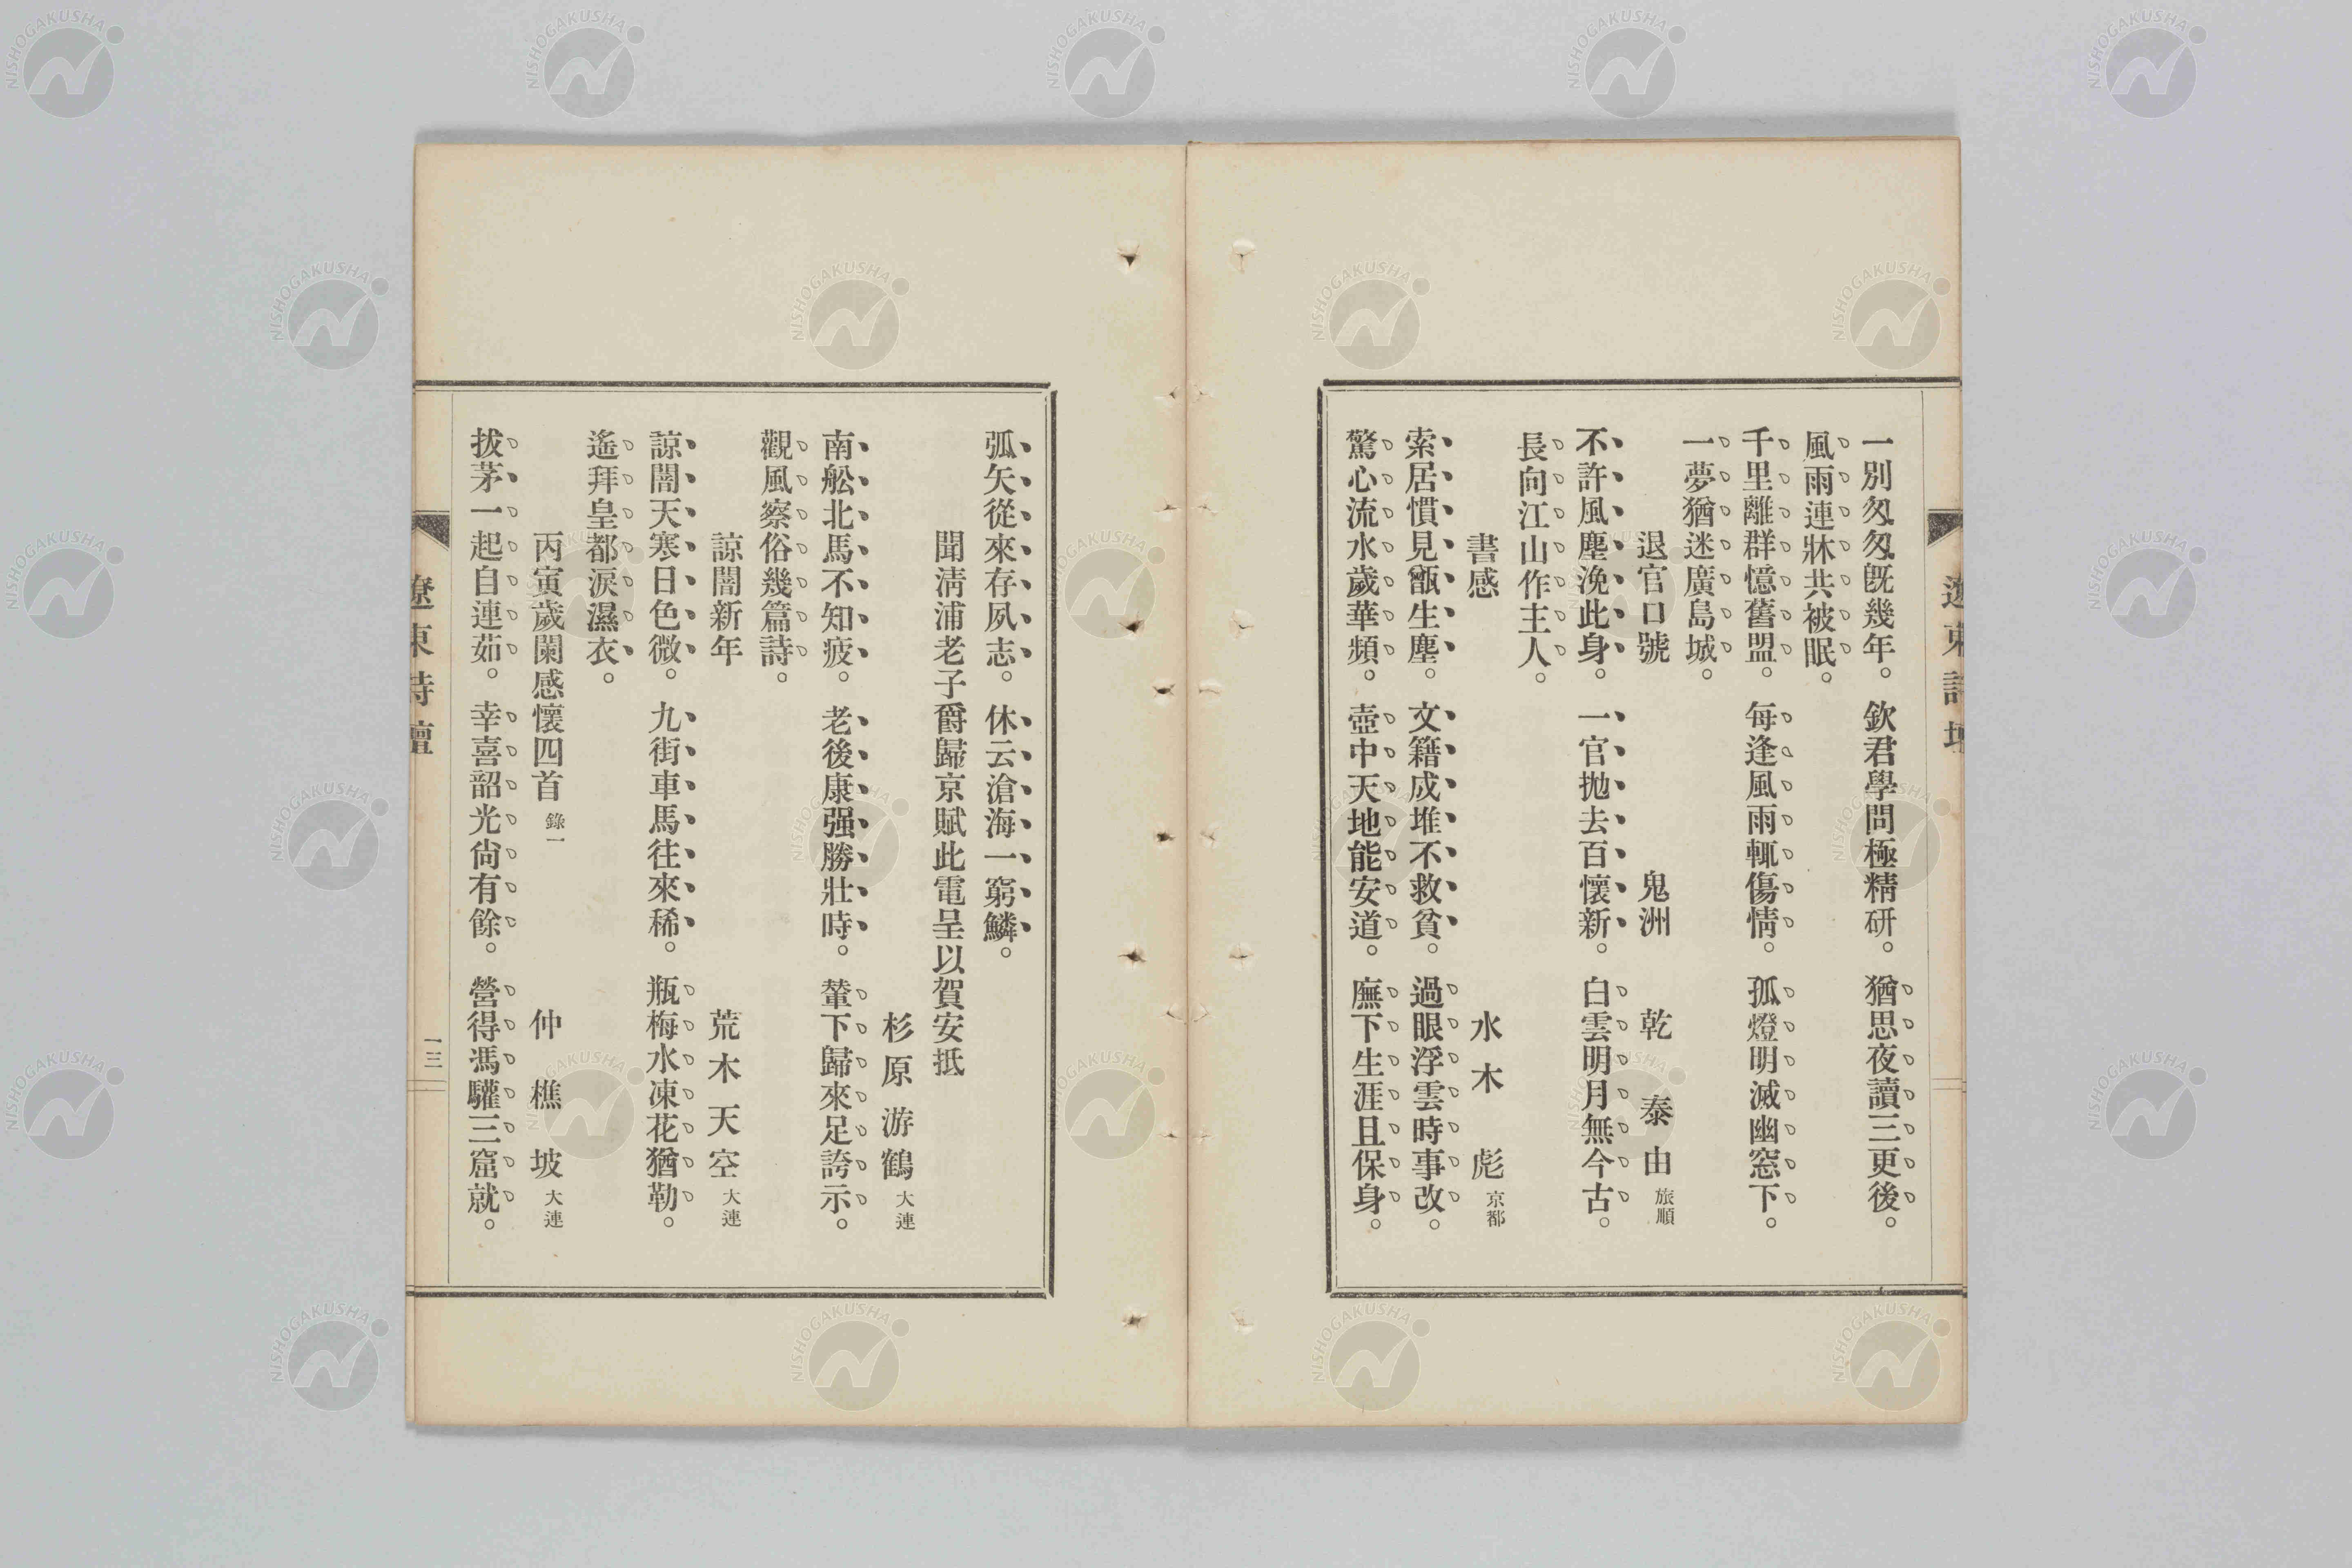 遼東詩壇
一別匆匆旣幾年。欽君學問極精研。猶思夜讀三更後。
風雨連牀共被眠。
千里離群憶舊盟。每逢風雨輒傷情。孤燈明滅幽窓下。
一夢猶迷廣島城。
退官口號 鬼洲 乾 泰由 旅順
不許風塵浼此身。一官抛去百懷新。白雲明月無今古。
長向江山作主人。
書感 水木 彪 京都
索居慣見甑生塵。文籍成堆不救貧。過眼浮雲時事改。
驚心流水歲華頻。壺中天地能安道。廡下生涯且保身。
弧矢從來存夙志。休云滄海一窮鱗。
聞淸浦老子爵歸京賦此電呈以賀安抵
杉原游鶴 大連
南舩北馬不知疲。老後康强勝壯時。輦下歸來足誇示。
觀風察俗幾篇詩。
諒闇新年 荒木天空 大連
諒闇天寒日色微。九街車馬往來稀。瓶梅水凍花猶勒。
遙拜皇都淚濕衣。
丙寅歲闌感懷四首 錄一 仲樵坡 大連
拔茅一起自連茹。幸喜韶光尙有餘。營得馮驩三窟就。
遼東詩壇
一三
NISHOGAKUSHA